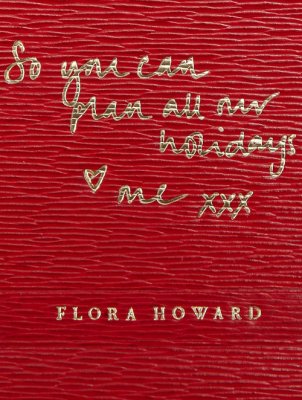 So you can
plan all our
holidays
♡ me xxx
FLORA HOWARD